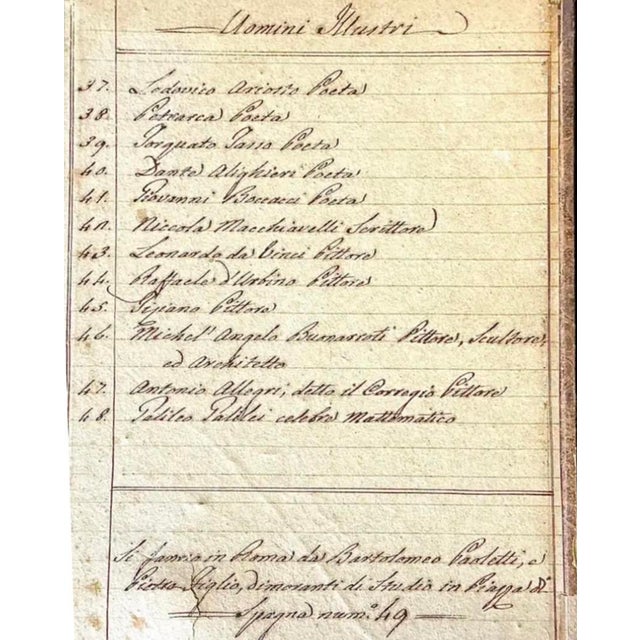 Uomini Illustri
37. Lodovico Ariosto Poeta
38. Petrarca Poeta
39. Torquato Tasso Poeta
40. Dante Alighieri Poeta
41. Giovanni Boccacci Poeta
42. Niccola Macchiavelli Scrittore
43. Leonardo da Vinci Pittore
44. Raffaele d'Urbino Pittore
45. Tiziano Pittore
46. Michel' Angelo Buonarroti Pittore, Scultore,
ed Architetto
47. Antonio Allegri, detto il Corregio Pittore
48. Galileo Galilei celebre Mattematico
Si fanno in Roma da Bartolomeo Paoletti, e
Pietro Figlio, dimoranti di Studio in Piazza di
Spagna num.o 49